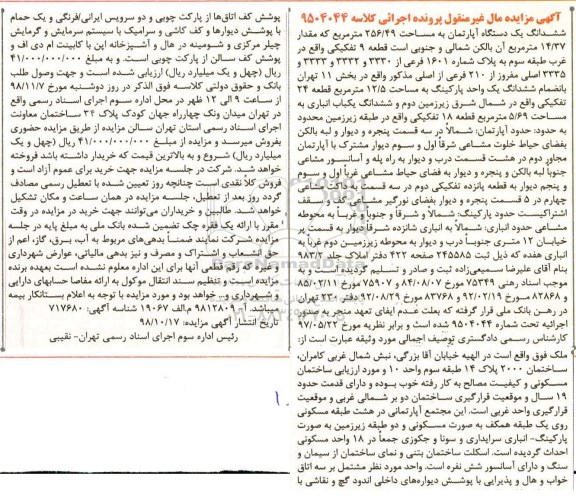 آگهی مزایده مال غیرمنقول پرونده اجرائی کلاسه ۹۵۰۴۰۴۴
ششدانگ یک دستگاه آپارتمان به مساحت ۲۵۶/۴۹ مترمربع که مقدار
۱۴/۳۷ مترمربع آن بالکن شمالی و جنوبی است قطعه ۹ تفکیکی واقع در
غرب طبقه سوم به پلاک شماره ۱۶۰۱ فرعی از ۳۳۳۰ و ۳۳۳۲ و ۳۳۳۳ و
۳۳۳۵ اصلی مفروز از ۲۱۰ فرعی از اصلی مذکور واقع در بخش ۱۱ تهران
بانضمام ششدانگ یک واحد پارکینگ به مساحت ۱۲/۵ مترمربع قطعه ۲۴
تفکیکی واقع در شمال شرق زیرزمین دوم و ششدانگ یکباب انباری به
مساحت ۵/۶۹ مترمربع قطعه ۱۸ تفکیکی واقع در طبقه زیرزمین محدود
به حدود: حدود آپارتمان: شمالاً در سه قسمت پنجره و دیوار و لبه بالکن
بفضای حیاط خلوت مشاعی شرقاً اول و سوم دیوار مشترک با آپارتمان
مجاور دوم در هشت قسمت درب و دیوار به راه پله و آسانسور مشاعی
جنوباً لبه بالکن و پنجره و دیوار به فضای حیاط مشاعی غرباً اول و سوم
و پنجم دیوار به قطعه پانزده تفکیکی دوم در سه قسمت به داکت
چهارم در ۵ قسمت پنجره و دیوار بفضای نورگیر مشاعی کف و سقف
اشتراکیست حدود پارکینگ: شمالاً و شرقاً و جنوباً و غرباً به محوطه
مشاعی حدود انباری: شمالاً به انباری شانزده شرقاً دیوار به قسمت پر
خیابان ۱۲ متری جنوباً درب و دیوار به محوطه زیرزمین دوم غرباً به
انباری هفده که ذیل ثبت ۲۴۵۵۸۵ صفحه ۴۲۲ دفتر املاک جلد ۹۸۳/۲
بنام آقای علیرضا سمیعی‌زاده ثبت و صادر و تسلیم گردیده است و به
موجب اسناد رهنی ۷۵۳۴۹ مورخ ۸۴/۰۸/۰۷ و ۷۵۹۰۷ مورخ ۸۵/۰۲/۱۱
و ۸۲۸۶۸ مورخ ۹۲/۰۲/۱۹ و ۸۳۷۶۸ مورخ ۹۲/۰۸/۲۹ دفتر ۲۳۰ تهران
در رهن بانک ملی قرار گرفته که بعلت عدم ایفای تعهد منجر به صدور
اجرائیه تحت شماره ۹۵۰۴۰۴۴ شده است و برابر نظریه مورخ ۹۷/۰۵/۲۲
کارشناس رسمی دادگستری توصیف اجمالی مورد وثیقه عبارت است از:
ملک فوق واقع است در الهیه خیابان آقا بزرگی، نبش شمال غربی کامران،
ساختمان ۲۰۰۰ پلاک ۱۴ طبقه سوم واحد ۱۰ و مورد ارزیابی ساختمان
مسکونی و کیفیت مصالح به کار رفته خوب بوده و دارای قدمت حدود
۱۹ سال و موقعیت قرارگیری ساختمان دو بر شمالی غربی و موقعیت
قرارگیری واحد غربی است. این مجتمع آپارتمانی در هشت طبقه مسکونی
روی یک طبقه همکف به صورت مسکونی و دو طبقه زیرزمین به صورت
پارکینگ- انباری سرایداری و سونا و جکوزی جمعاً در ۱۸ واحد مسکونی
احداث گردیده است. اسکلت ساختمان بتنی و نمای ساختمان از سیمان و
سنگ و دارای آسانسور شش نفره است. واحد مورد نظر مشتمل بر سه اتاق
خواب و هال و پذیرایی با پوشش دیواره‌های داخلی اندود گچ و نقاشی با
پوشش کف اتاق‌ها از پارکت چوبی و دو سرویس ایرانی/فرنگی و یک حمام
با پوشش دیوارها و کف کاشی و سرامیک با سیستم سرمایش و گرمایش
چیلر مرکزی و شومینه در هال و آشپزخانه اپن با کابینت ام دی اف و
پوشش کف سالن از پارکت چوبی است. و به مبلغ ۴۱/۰۰۰/۰۰۰/۰۰۰
ریال (چهل و یک میلیارد ریال) ارزیابی شده است و جهت وصول طلب
بانک و حقوق دولتی کلاسه فوق الذکر در روز دوشنبه مورخ ۹۸/۱۱/۷
از ساعت ۹ الی ۱۲ ظهر در محل اداره سوم اجرای اسناد رسمی واقع
در تهران میدان ونک چهارراه جهان کودک پلاک ۳۴ ساختمان معاونت
اجرای اسناد رسمی استان تهران سالن مزایده از طریق مزایده حضوری
بفروش میرسد و مزایده از مبلغ ۴۱/۰۰۰/۰۰۰/۰۰۰ ریال (چهل و یک
میلیارد ریال) شروع و به بالاترین قیمت که خریدار داشته باشد فروخته
خواهد شد. شرکت در جلسه مزایده جهت خرید برای عموم آزاد است و
فروش کلاً نقدی است چنانچه روز تعیین شده با تعطیل رسمی مصادف
گردد روز بعد از تعطیل، جلسه مزایده در همان ساعت و مکان تشکیل
خواهد شد. طالبین و خریداران می‌توانند جهت خرید در مزایده در وقت
مقرر با ارائه یک فقره چک تضمین شده بانک ملی به مبلغ پایه در جلسه
مزایده شرکت نمایند ضمناً بدهی‌های مربوط به آب، برق، گاز، اعم از
حق انشعاب و اشتراک و مصرف و نیز بدهی مالیاتی، عوارض شهرداری
و غیره که رقم قطعی آنها برای این اداره معلوم نشده است بعهده برنده
مزایده است و تنظیم سند انتقال موکول به ارائه مفاصا حسابهای دارایی
و شهرداری و.. خواهد بود و مورد مزایده با توجه به اعلام بستانکار بیمه
میباشد. آ- ۹۸۱۲۸۰۹ م.الف ۱۹۰۶۷ شناسه آگهی: ۷۱۷۶۸۰
تاریخ انتشار آگهی مزایده: ۹۸/۱۰/۱۷
رئیس اداره سوم اجرای اسناد رسمی تهران- نقیبی